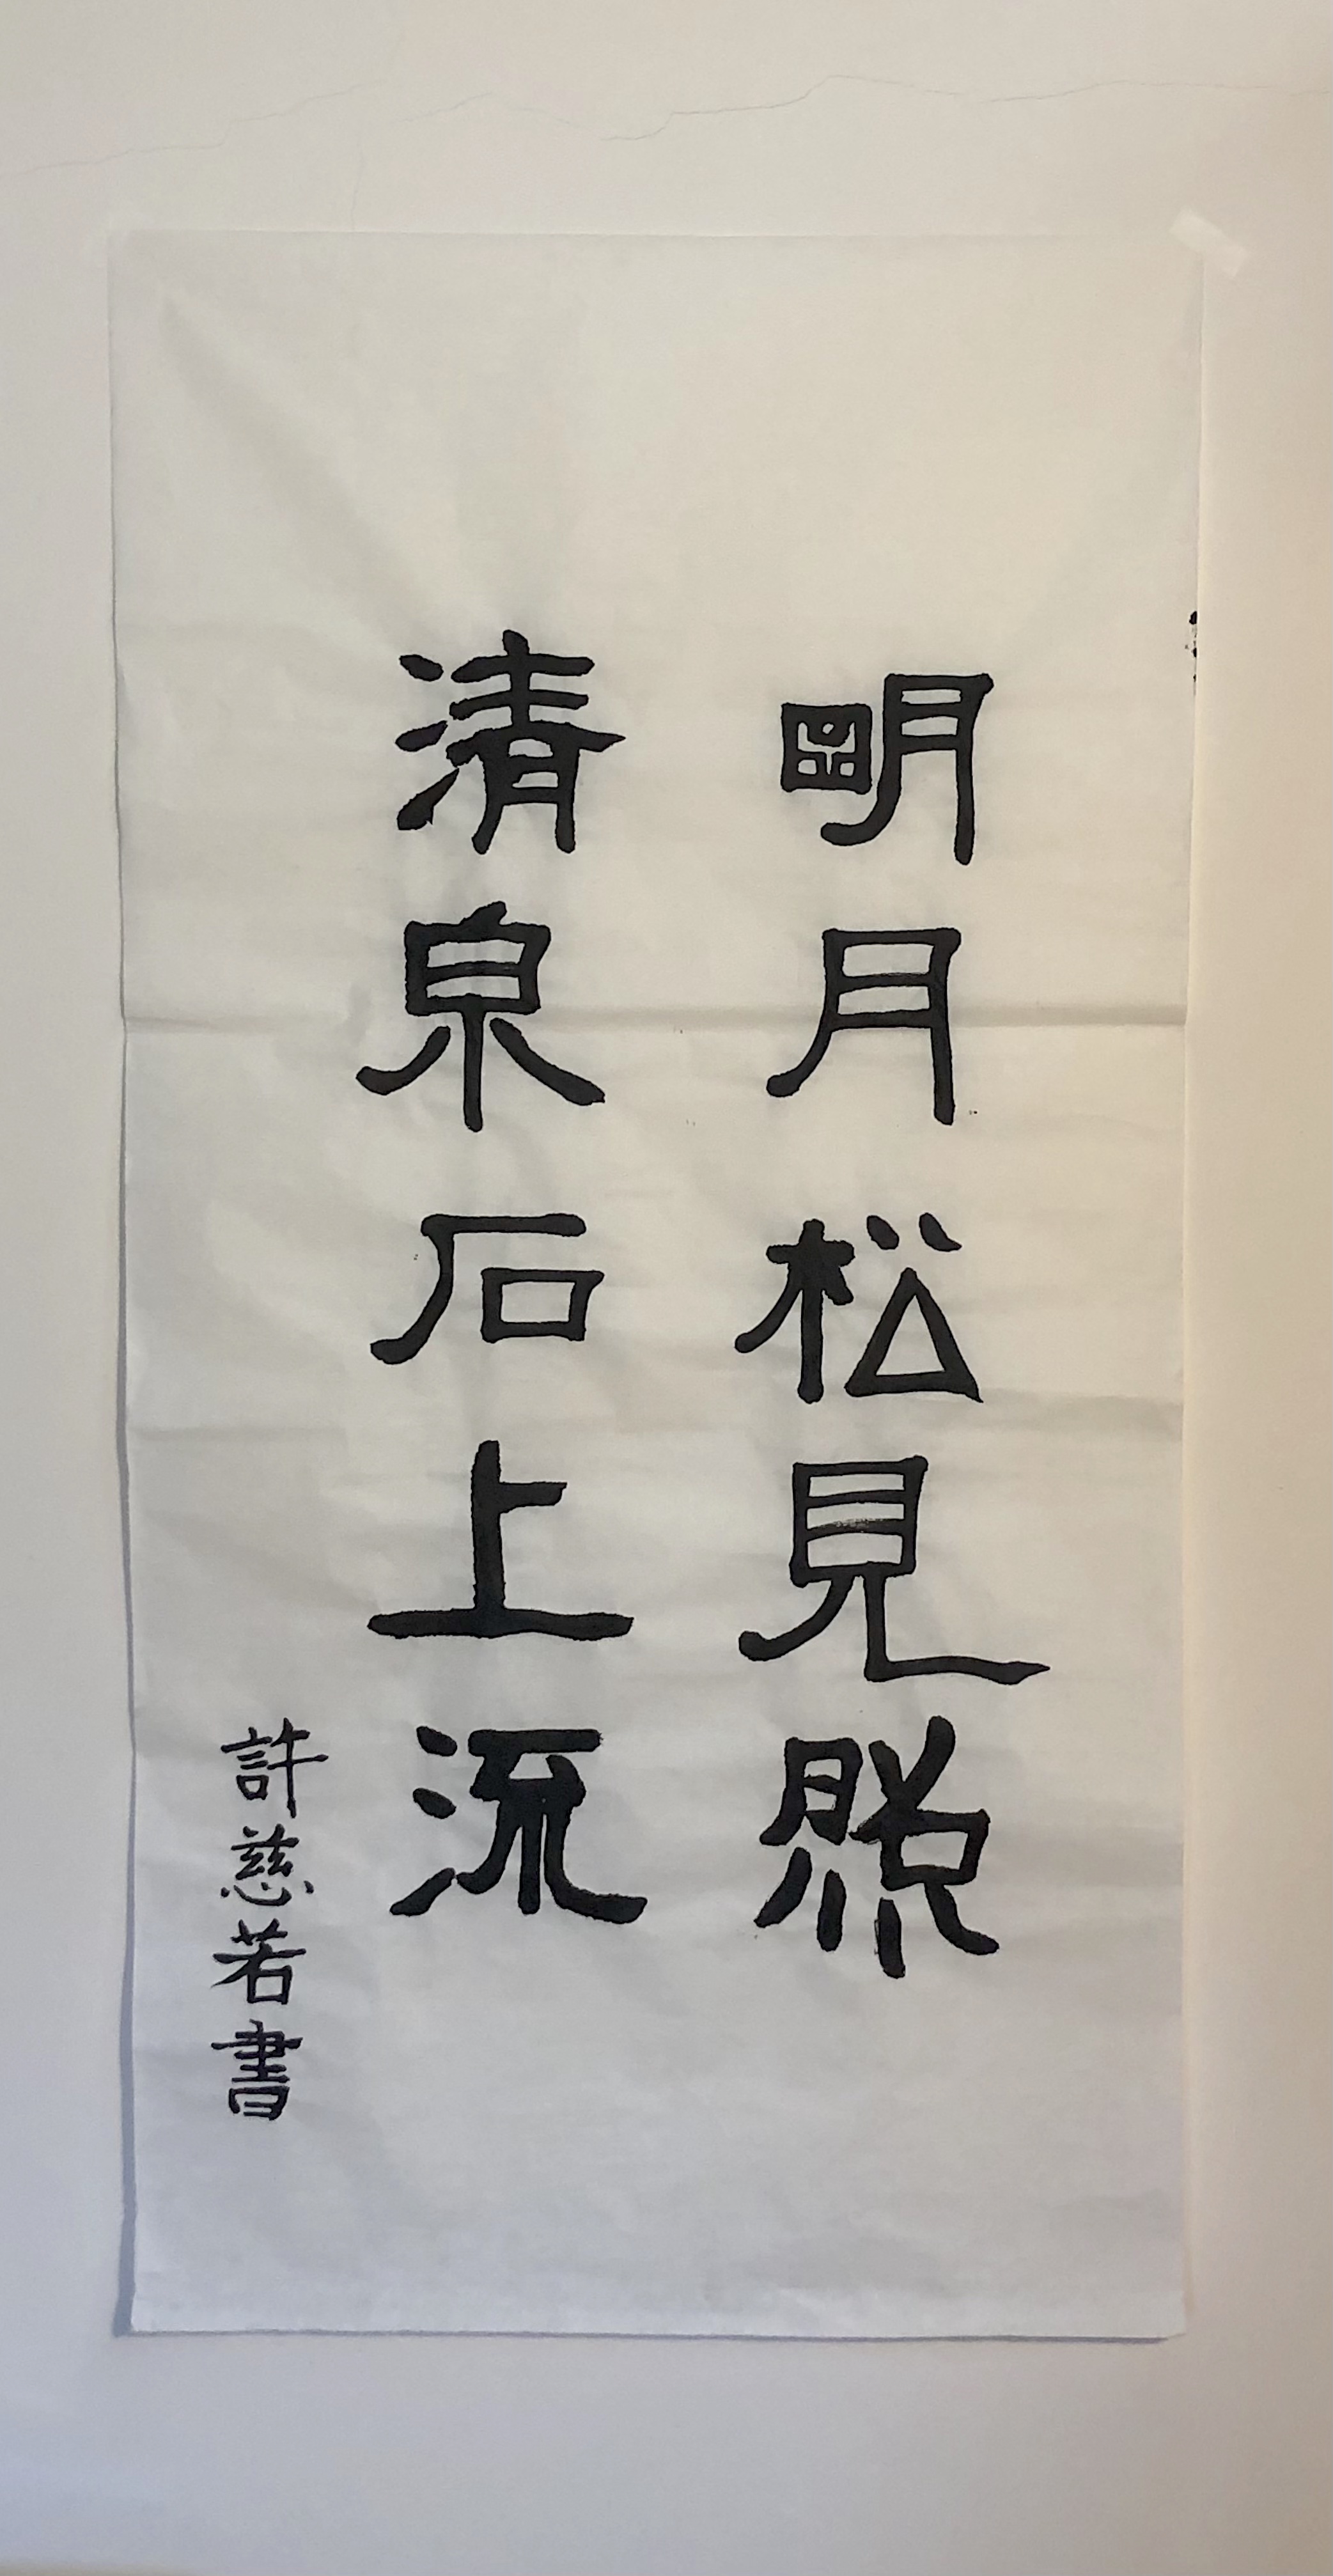 明月松見照
清泉石上流
許慈若書